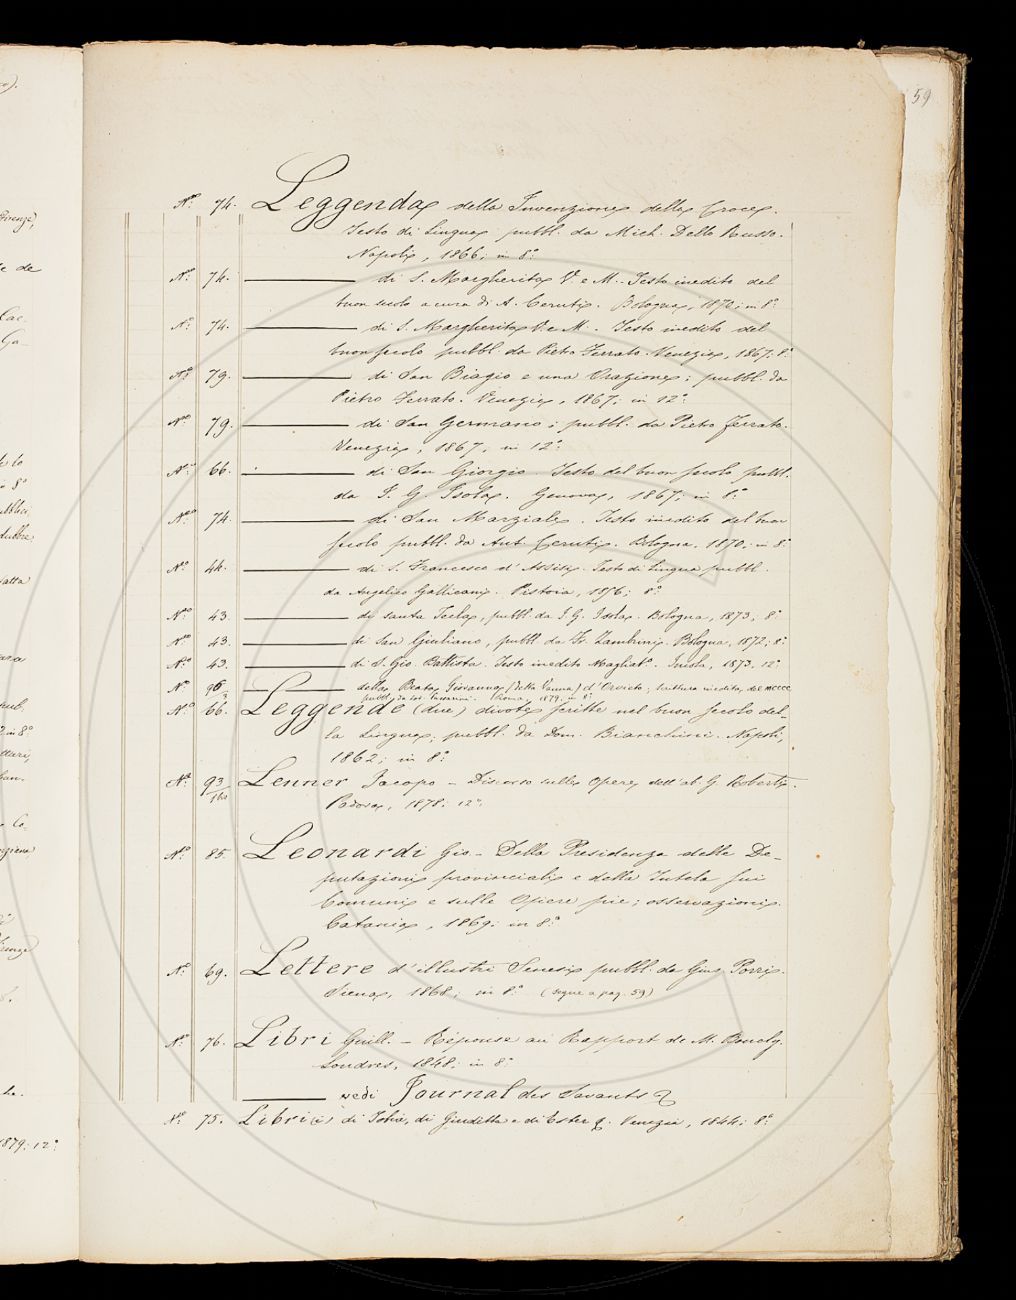 59
Nº 74. Leggenda della Invenzione della Croce.
Testo di Lingua pubbl. da Mich. Dello Russo.
Napoli, 1866; in 8º
Nº 74. — di S. Margherita V. e M. Testo inedito del
buon secolo a cura di A. Ceruti. Bologna, 1870; in 8º
Nº 74. — di S. Margherita V. e M. Testo inedito del
buon secolo pubbl. da Pietro Ferrato. Venezia, 1867. 8º
Nº 79. — di San Biagio e una Orazione; pubbl. da
Pietro Ferrato. Venezia, 1867; in 12º
Nº 79. — di San Germano; pubbl. da Pietro Ferrato.
Venezia, 1867, in 12º
Nº 66. — di San Giorgio Testo del buon secolo pubbl.
da I. G. Isola. Genova, 1867; in 8º
Nº 74. — di San Marziale. Testo inedito del buon
secolo pubbl. da Ant. Ceruti. Bologna. 1870; in 8º
Nº 44. — di S. Francesco d'Assisi. Testo di Lingua pubbl.
da Angelico Gallicani. Pistoia, 1876; 8º
Nº 43. — di santa Tecla, pubbl. da I. G. Isola. Bologna, 1873; 8º
Nº 43. — di San Giuliano, pubbl. da Fr. Zambrini. Bologna, 1872; 8º
Nº 43. — di S. Gio. Battista. Testo inedito Magliab. Imola, 1873. 12º
Nº 96/3 — della Beata Giovanna (detta Vanna) d'Orvieto; scrittura inedita, del MCCCC
pubbl. da Lod. Passarini. Roma, 1879; in 8º
Nº 66. Leggende (due) divote scritte nel buon secolo del-
la Lingua, pubbl. da Dom. Bianchini. Napoli,
1862; in 8º
Nº 93/ Lenner Jacopo – Discorso sulle Opere dell'ab. G. Roberti.
Padova, 1878; 12º
Nº 85. Leonardi Gio. – Della Presidenza delle De-
putazioni provinciali e della Tutela sui
Comuni e sulle Opere pie; osservazioni.
Catania, 1869; in 8º
Nº 69. Lettere d'illustri Senesi pubbl. da Gius. Porri.
Siena, 1868; in 8º (segue a pag. 59)
Nº 76. Libri Guill. – Réponse au Rapport de M. Boucly.
Londres, 1848; in 8º
— vedi Journal des Savants &
Nº 75. Libri (i) di Tobia, di Giuditta e di Ester &. Venezia, 1844; 8º
1879; 12º